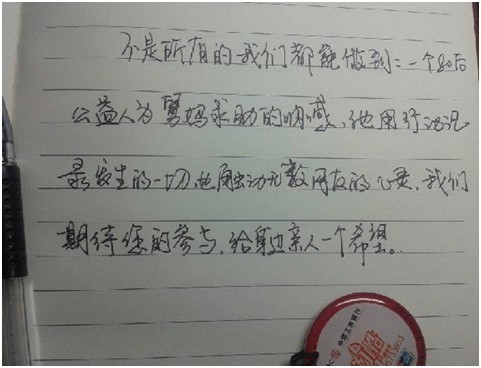 不是所有的我们都能做到：一个80后
公益人为舅妈求助的情感、他用行动记
录发生的一切,也触动无数网友的心灵、我们
期待您的参与、给身边亲人一个希望。
中国工商银行